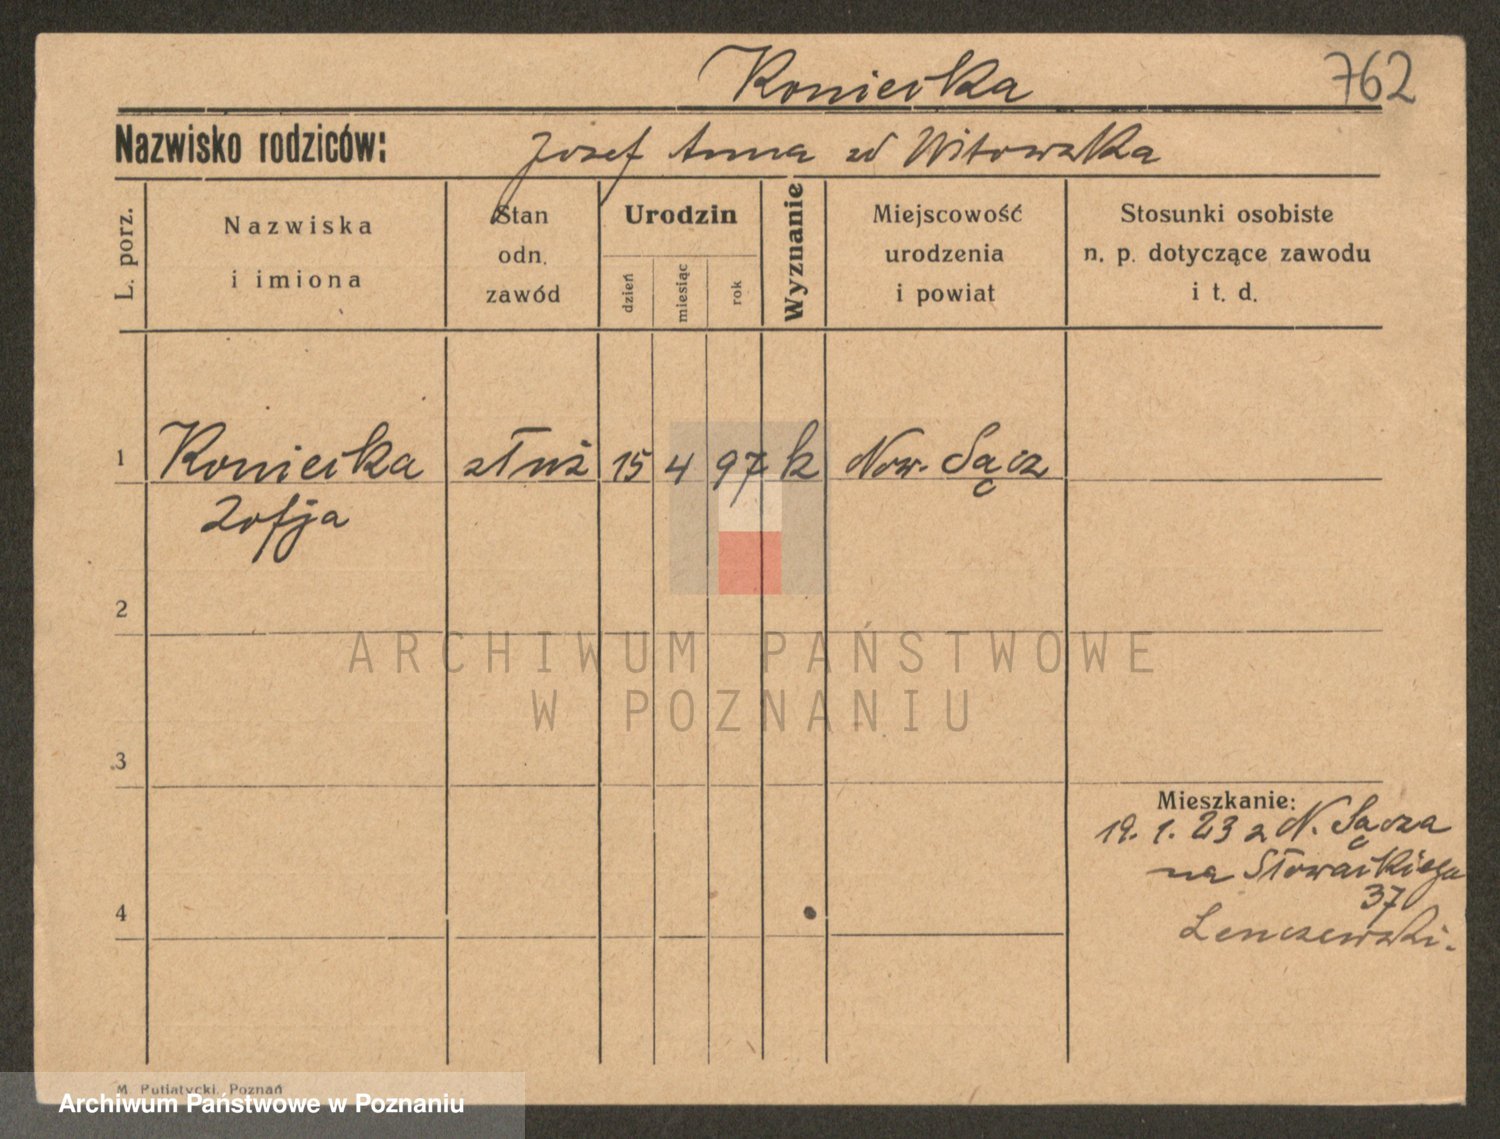 Koniecka
762
Nazwisko rodziców: Józef Anna zd Witowska
L. porz.
Nazwiska
i imiona
Stan
odn.
zawód
Urodzin
dzień
miesiąc
rok
Wyznanie
Miejscowość
urodzenia
i powiat
Stosunki osobiste
n. p. dotyczące zawodu
i t. d.
1 Koniecka służ 15 4 97 k Now. Sącz
Zofja
2
ARCHIWUM PAŃSTWOWE
W POZNANIU
3
Mieszkanie:
19. 1. 23 z N. Sącza
na Słowackiego
37
4
Lenczewski.
M. Putiatycki, Poznań
Archiwum Państwowe w Poznaniu